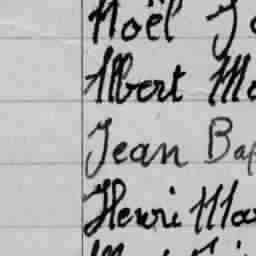 Noël J
Albert Ma
Jean Bap
Henri Mar